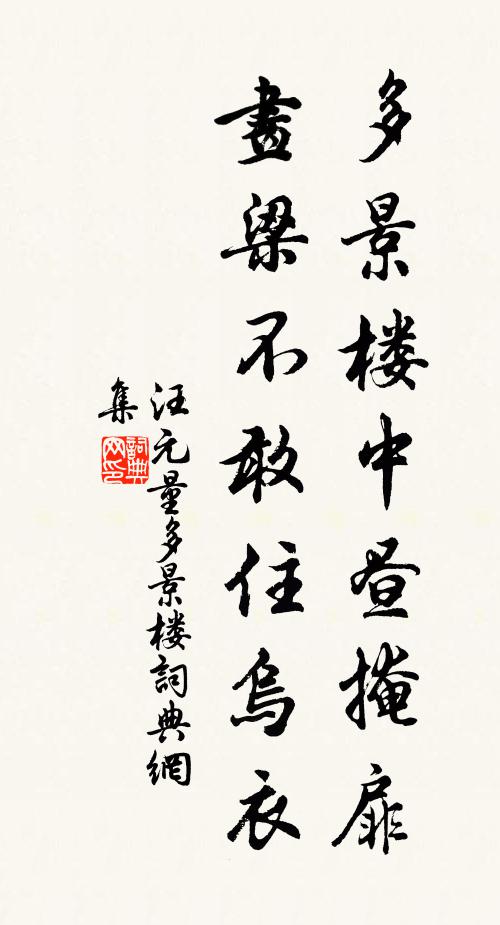 多景楼中昼掩扉
畫梁不敢住烏衣
汪元量多景楼詞典網
集
詞典
网印